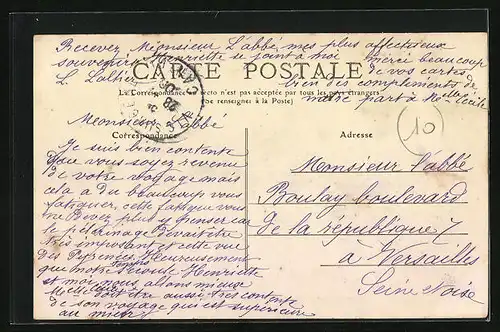 Recevez Monsieur L'abbé mes plus affectueux
souvenirs Henriette se joint a moi merci beaucoup
L. Laltier de vos cartes
CARTE POSTALE
bien des compliments de
notre part à Melle Cécile
La Correspondance au recto n'est pas acceptée par tous les pays étrangers
(Se renseigner à la Poste)
Correspondance
Adresse
10
Monsieur l'abbé
Je suis bien contente
que vous soyez revenu
de votre voyage mais
cela a du beaucoup vous
fatiguer, cette fatigue vous
ne devez plus y penser car
le pélerinage devait être
très imposant et cette vue
des Pyrénées heureusement
que notre Henriette
et moi nous allons mieux
Melle doit être aussi très contente
de son voyage qui est supérieure
au mien
Monsieur l'abbé
Boulay boulevard
de la république 7
à Versailles
Seine et Oise